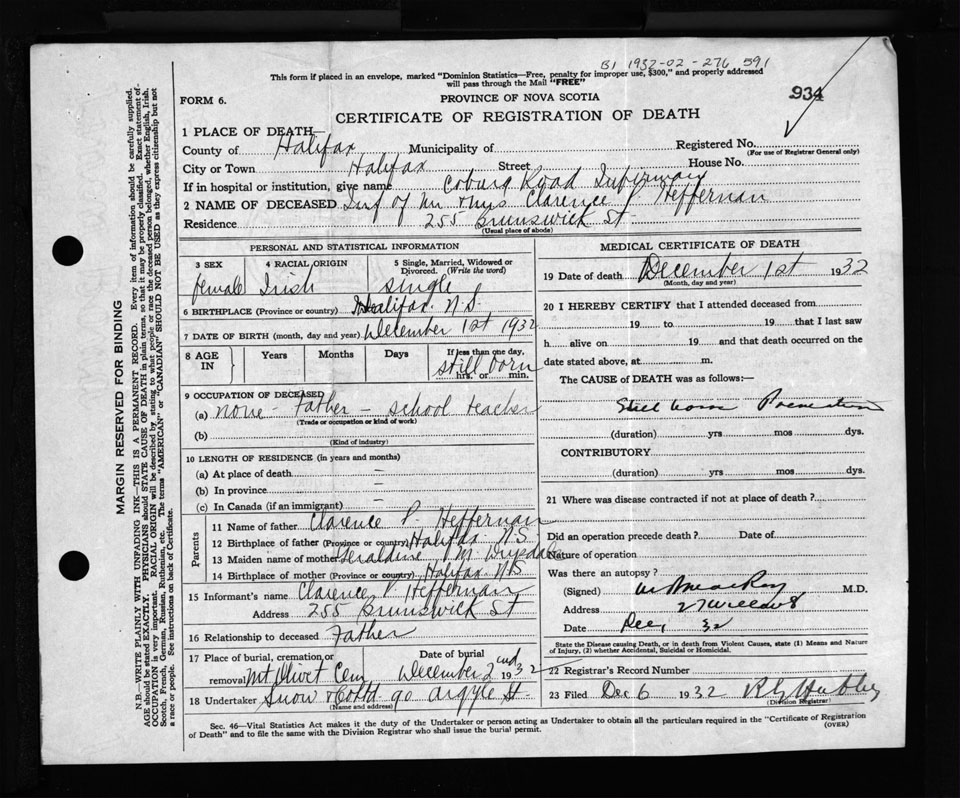 B1 1932-02-276 591
This form if placed in an envelope, marked "Dominion Statistics—Free, penalty for improper use, $300," and properly addressed
will pass through the Mail "FREE"
934
FORM 6.
PROVINCE OF NOVA SCOTIA
CERTIFICATE OF REGISTRATION OF DEATH
1 PLACE OF DEATH—
County of Halifax Municipality of Registered No.
(For use of Registrar General only)
City or Town Halifax Street House No.
If in hospital or institution, give name Coburg Road Infirmary
2 NAME OF DECEASED Inf of Mr & Mrs Clarence P. Heffernan
Residence 255 Brunswick St
(Usual place of abode)
PERSONAL AND STATISTICAL INFORMATION
3 SEX 4 RACIAL ORIGIN 5 Single, Married, Widowed or
Divorced. (Write the word)
female Irish single
6 BIRTHPLACE (Province or country) Halifax N.S.
7 DATE OF BIRTH (month, day and year) December 1st 1932
8 AGE IN Years Months Days If less than one day,
still born
hrs. or min.
9 OCCUPATION OF DECEASED
(a) none - Father - school teacher
(Trade or occupation or kind of work)
(b)
(Kind of industry)
10 LENGTH OF RESIDENCE (in years and months)
(a) At place of death —
(b) In province —
(c) In Canada (if an immigrant) —
Parents
11 Name of father Clarence P. Heffernan
12 Birthplace of father (Province or country) Halifax N.S.
13 Maiden name of mother Geraldine M
14 Birthplace of mother (Province or country) Halifax N.S
15 Informant's name Clarence P. Heffernan
Address 255 Brunswick St
16 Relationship to deceased Father
17 Place of burial, cremation or Date of burial
removal Mt Olivet Cem December 2nd 1932
18 Undertaker Snow & Co Ltd 90 Argyle St.
(Name and address)
MEDICAL CERTIFICATE OF DEATH
19 Date of death December 1st 1932
(Month, day and year)
20 I HEREBY CERTIFY that I attended deceased from
19 to 19 that I last saw
h alive on 19 and that death occurred on the
date stated above, at m.
The CAUSE of DEATH was as follows:—
Still born Premature
(duration) yrs mos dys.
CONTRIBUTORY
(duration) yrs mos dys.
21 Where was disease contracted if not at place of death?
Did an operation precede death? Date of
Nature of operation
Was there an autopsy?
(Signed) M.D.
Address
Date Dec 32
State the Disease causing Death, or in death from Violent Causes, state (1) Means and Nature
of Injury, (2) whether Accidental, Suicidal or Homicidal.
22 Registrar's Record Number
23 Filed Dec 6 1932
(Division Registrar)
Sec. 46—Vital Statistics Act makes it the duty of the Undertaker or person acting as Undertaker to obtain all the particulars required in the "Certificate of Registration
of Death" and to file the same with the Division Registrar who shall issue the burial permit.
(OVER)
MARGIN RESERVED FOR BINDING
N.B.—WRITE PLAINLY WITH UNFADING INK—THIS IS A PERMANENT RECORD. Every item of information should be carefully supplied.
AGE should be stated EXACTLY. PHYSICIANS should STATE CAUSE OF DEATH in plain terms, so that it may be properly classified. Exact statement of
OCCUPATION is very important. RACIAL ORIGIN will be described by stating to what people or race the deceased person belonged, whether English, Irish,
Scotch, French, German, Russian, Ruthenian, etc. The terms "AMERICAN" or "CANADIAN" SHOULD NOT BE USED as they express citizenship but not
a race or people. See instructions on back of Certificate.